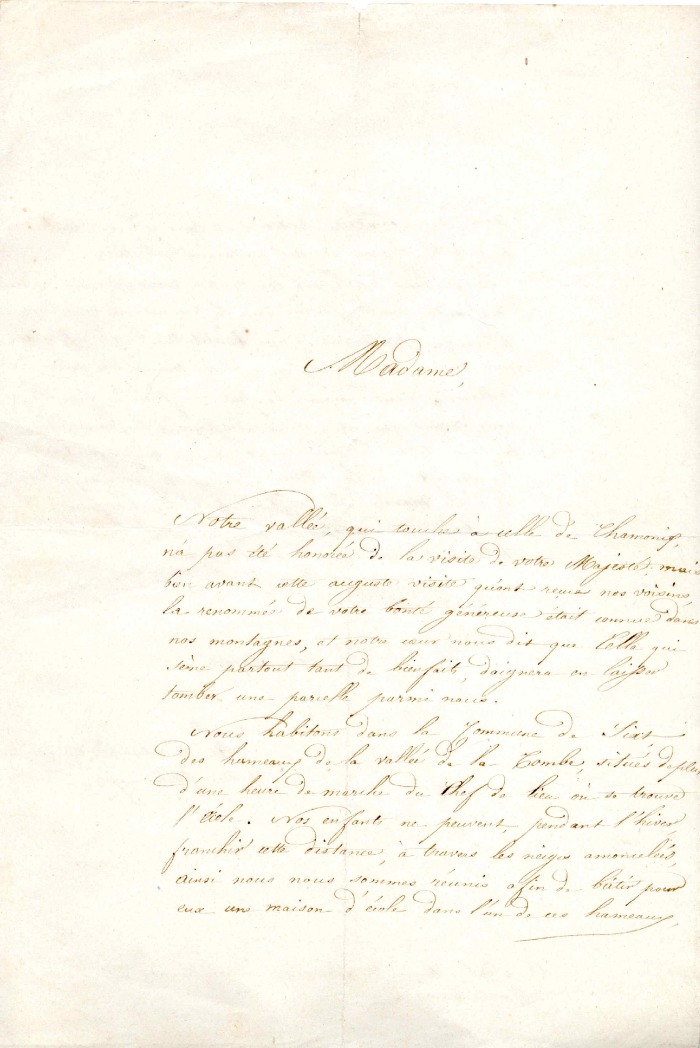 Madame,
Notre vallée, qui touche à celle de Chamonix,
n'a pas été honorée de la visite de votre Majesté; mais
bien avant cette auguste visite qu'ont reçue nos voisins,
la renommée de votre bonté généreuse était connue dans
nos montagnes, et notre cœur nous dit que Celle qui
sème partout tant de bienfaits, daignera en laisser
tomber une parcelle parmi nous.
Nous habitons dans la Commune de Sixt
des hameaux de la vallée de la Combe, situés de plus
d'une heure de marche du Chef de lieu où se trouve
l'école. Nos enfants ne peuvent, pendant l'hiver,
franchir cette distance, à travers les neiges amoncelées,
ainsi nous nous sommes réunis afin de bâtir pour
eux une maison d'école dans l'un de ces hameaux,